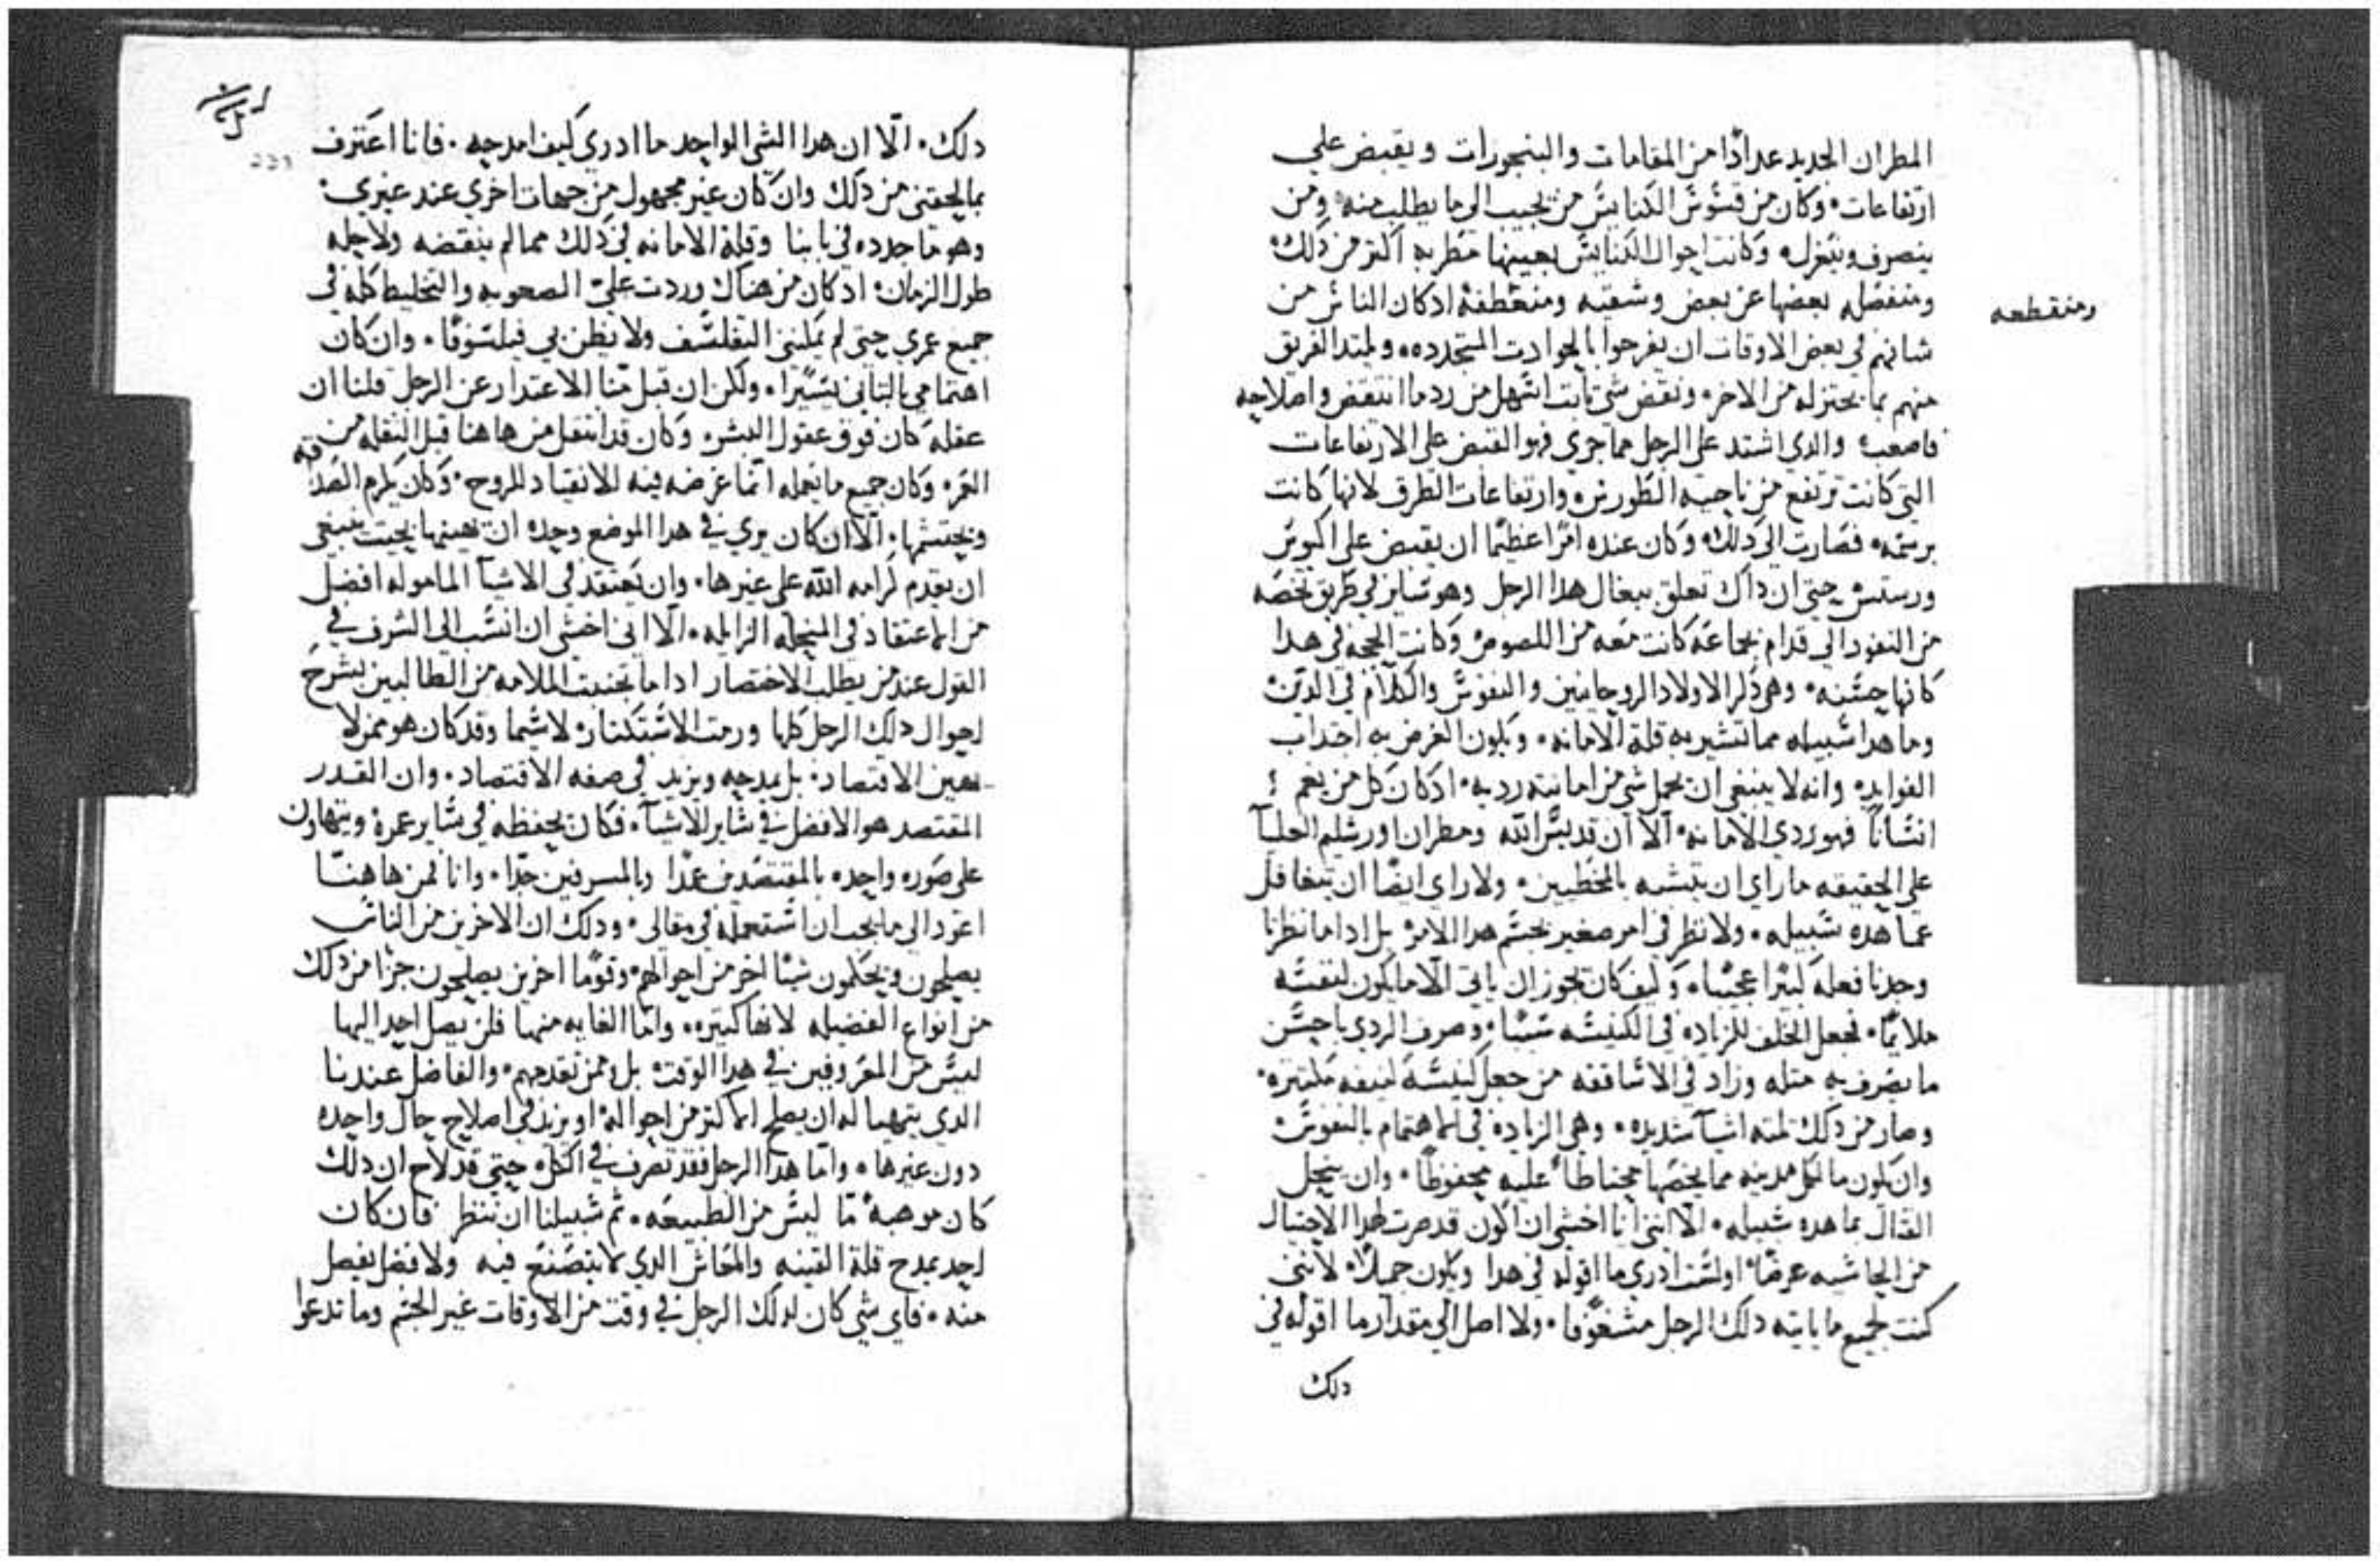 المطران الجديد عدادًا من المقامات والبنجورات ويقبض علي
ارتفاعات. وكان من قسوس الكنايس من يجيب الى ما يطلب منه. ومن
ينصرف ويتغزل. وكانت احوال الكنايس بعينها مضطربه اكتر من دلك
ومنفصله بعضها عن بعض وشعبه ومنعطفه ادكان الناس من
ومنقطعه
شانهم في بعض الاوقات ان يفرحوا بالحوادت المتجدده. ويلتد الفريق
منهم بما يختزله من الاخر. ونقض شي تابت اسهل من رد ما انتقض واصلاحه
فاصعب. والدي اشتد على الرجل مما جرى فهو القبض على الارتفاعات
التي كانت ترتفع من ناحيه الطورنس وارتفاعات الطرق لانها كانت
برسمه. فصارت الى دلك. وكان عنده امرًا عظيمًا ان يقبض على
ورستس حتى ان داك تعلق ببغال هدا الرجل وهو ساير في طريق تخصه
من النفود الى قدام بجماعه كانت معه من اللصوص وكانت الحجه في هدا
كانها حسنه. وهي دكر الاولاد الروحانيين والنفوس والكلام في الدين
وما هدا سبيله مما تستتر به قلة الامانه. ويكون الغرض به اجتداب
الفوايد. وانه لا ينبغي ان يحمل شي من امانته رديه. ادكان كل من يغم
انسانًا فهو ردي الامانه. الا ان قديس الله ومطران اورشليم العليا
على الحقيقه ما راي ان يتشبه بالمخطيين. ولا راي ايضًا ان يتغافل
عما هده سبيله. ولا نظر في امر صغير يحسم هدا الامر بل ادا ما نظرنا
وجدنا فعله كبيرًا عجيبًا. وكيف كان يجوز ان ياتي الا ما يكون لنفسه
ملايمًا. فجعل الخلف للزياده في الكنيسه سببًا. وصرف الردي باحسن
ما يصرف به متله وزاد في الاساقفه من جعل كنيسه لنفسه كتيره.
وصار من دلك تلته اشيا شديده. وهي الزياده في الاهتمام بالنفوس
وان يكون ما لكل مدينه مما يخصها محتاطًا عليه محفوظًا. وان ينحل
القتال بما هده سبيله. الا انني انا اخشى ان اكون قد صرت لهدا الاحتيال
من الحاشيه عرضًا. اولست ادري ما اقوله في هدا ويكون جميلًا. لانني
كنت لجميع ما ياتيه دلك الرجل مشغوفًا. ولا اصل الى مقدار ما اقوله في
دلك
دلك. الا ان هدا الشي الواحد ما ادري كيف امدحه. فانا اعترف
بما لحقني من دلك وان كان غير مجهول من جهات اخرى عند غيري.
وهو ما جدده في بابنا وقلة الامانه في دلك مما لم ينقضه ولا حله
طول الزمان. ادكان من هناك وردت علي الصعوبه والتخليط كله في
جميع عمري حتى لم يمكنني التفلسف ولا يظن بي فيلسوفًا. وان كان
اهتمامي بالتاني يسيرًا. ولكن ان قبل منا الاعتدار عن الرجل قلنا ان
عقله كان فوق عقول البشر. وكان قد انتقل من هاهنا قبل النقله من
العمر. وكان جميع ما يعمله انما غرضه فيه الانقياد للروح. وكان يكرم الصداقه
ويحتشمها. الا ان كان يرى في هدا الموضع وحده ان يهينها بحيت ينبغي
ان يقدم كرامه الله على غيرها. وان يعتقد في الاشيا الماموله افضل
من الاعتقاد في المنحله الزايله. الا اني اخشى ان انسب الى السرف في
القول عند من يطلب الاختصار ادا ما تجنبت الملامه من الطالبين بشرح
احوال دلك الرجل كلها ورمت الاستكتار. لا سيما وقد كان هو ممن لا
يهين الاقتصاد. بل يمدحه ويزيد في صفه الاقتصاد. وان القدر
المقتصد هو الافضل في ساير الاشيا. فكان يحفظه في ساير عمره ويتهاون
على صوره واحده بالمقتصدين غدا وبالمسرفين جدًا. وانا فمن هاهنا
اعود الى ما يجب ان استعمله في مقالي. ودلك ان الاخرين من الناس
يصلحون ويحكمون شيًا اخر من احوالهم. وقومًا اخرين يصلحون جزًا من دلك
من انواع الفضيله لانها كتيره. واما الغايه منها فلن يصل احد اليها
ليس من المعروفين في هدا الوقت بل وممن تقدمهم. والفاضل عندنا
الدي يتهيا له ان يصلح الاكتر من احواله. او يزيد في اصلاح حال واحده
دون غيرها. واما هدا الرجل فقد تصرف في الكل. حتى قد لاح ان دلك
كان موهبه ما ليس من الطبيعه. تم سبيلنا ان ننظر فان كان
احد يمدح قلة القنيه والمعاش الدي لا يتصنع فيه ولا فضل يفضل
منه. فاي شي كان لدلك الرجل في وقت من الاوقات غير الجسم وما تدعوا